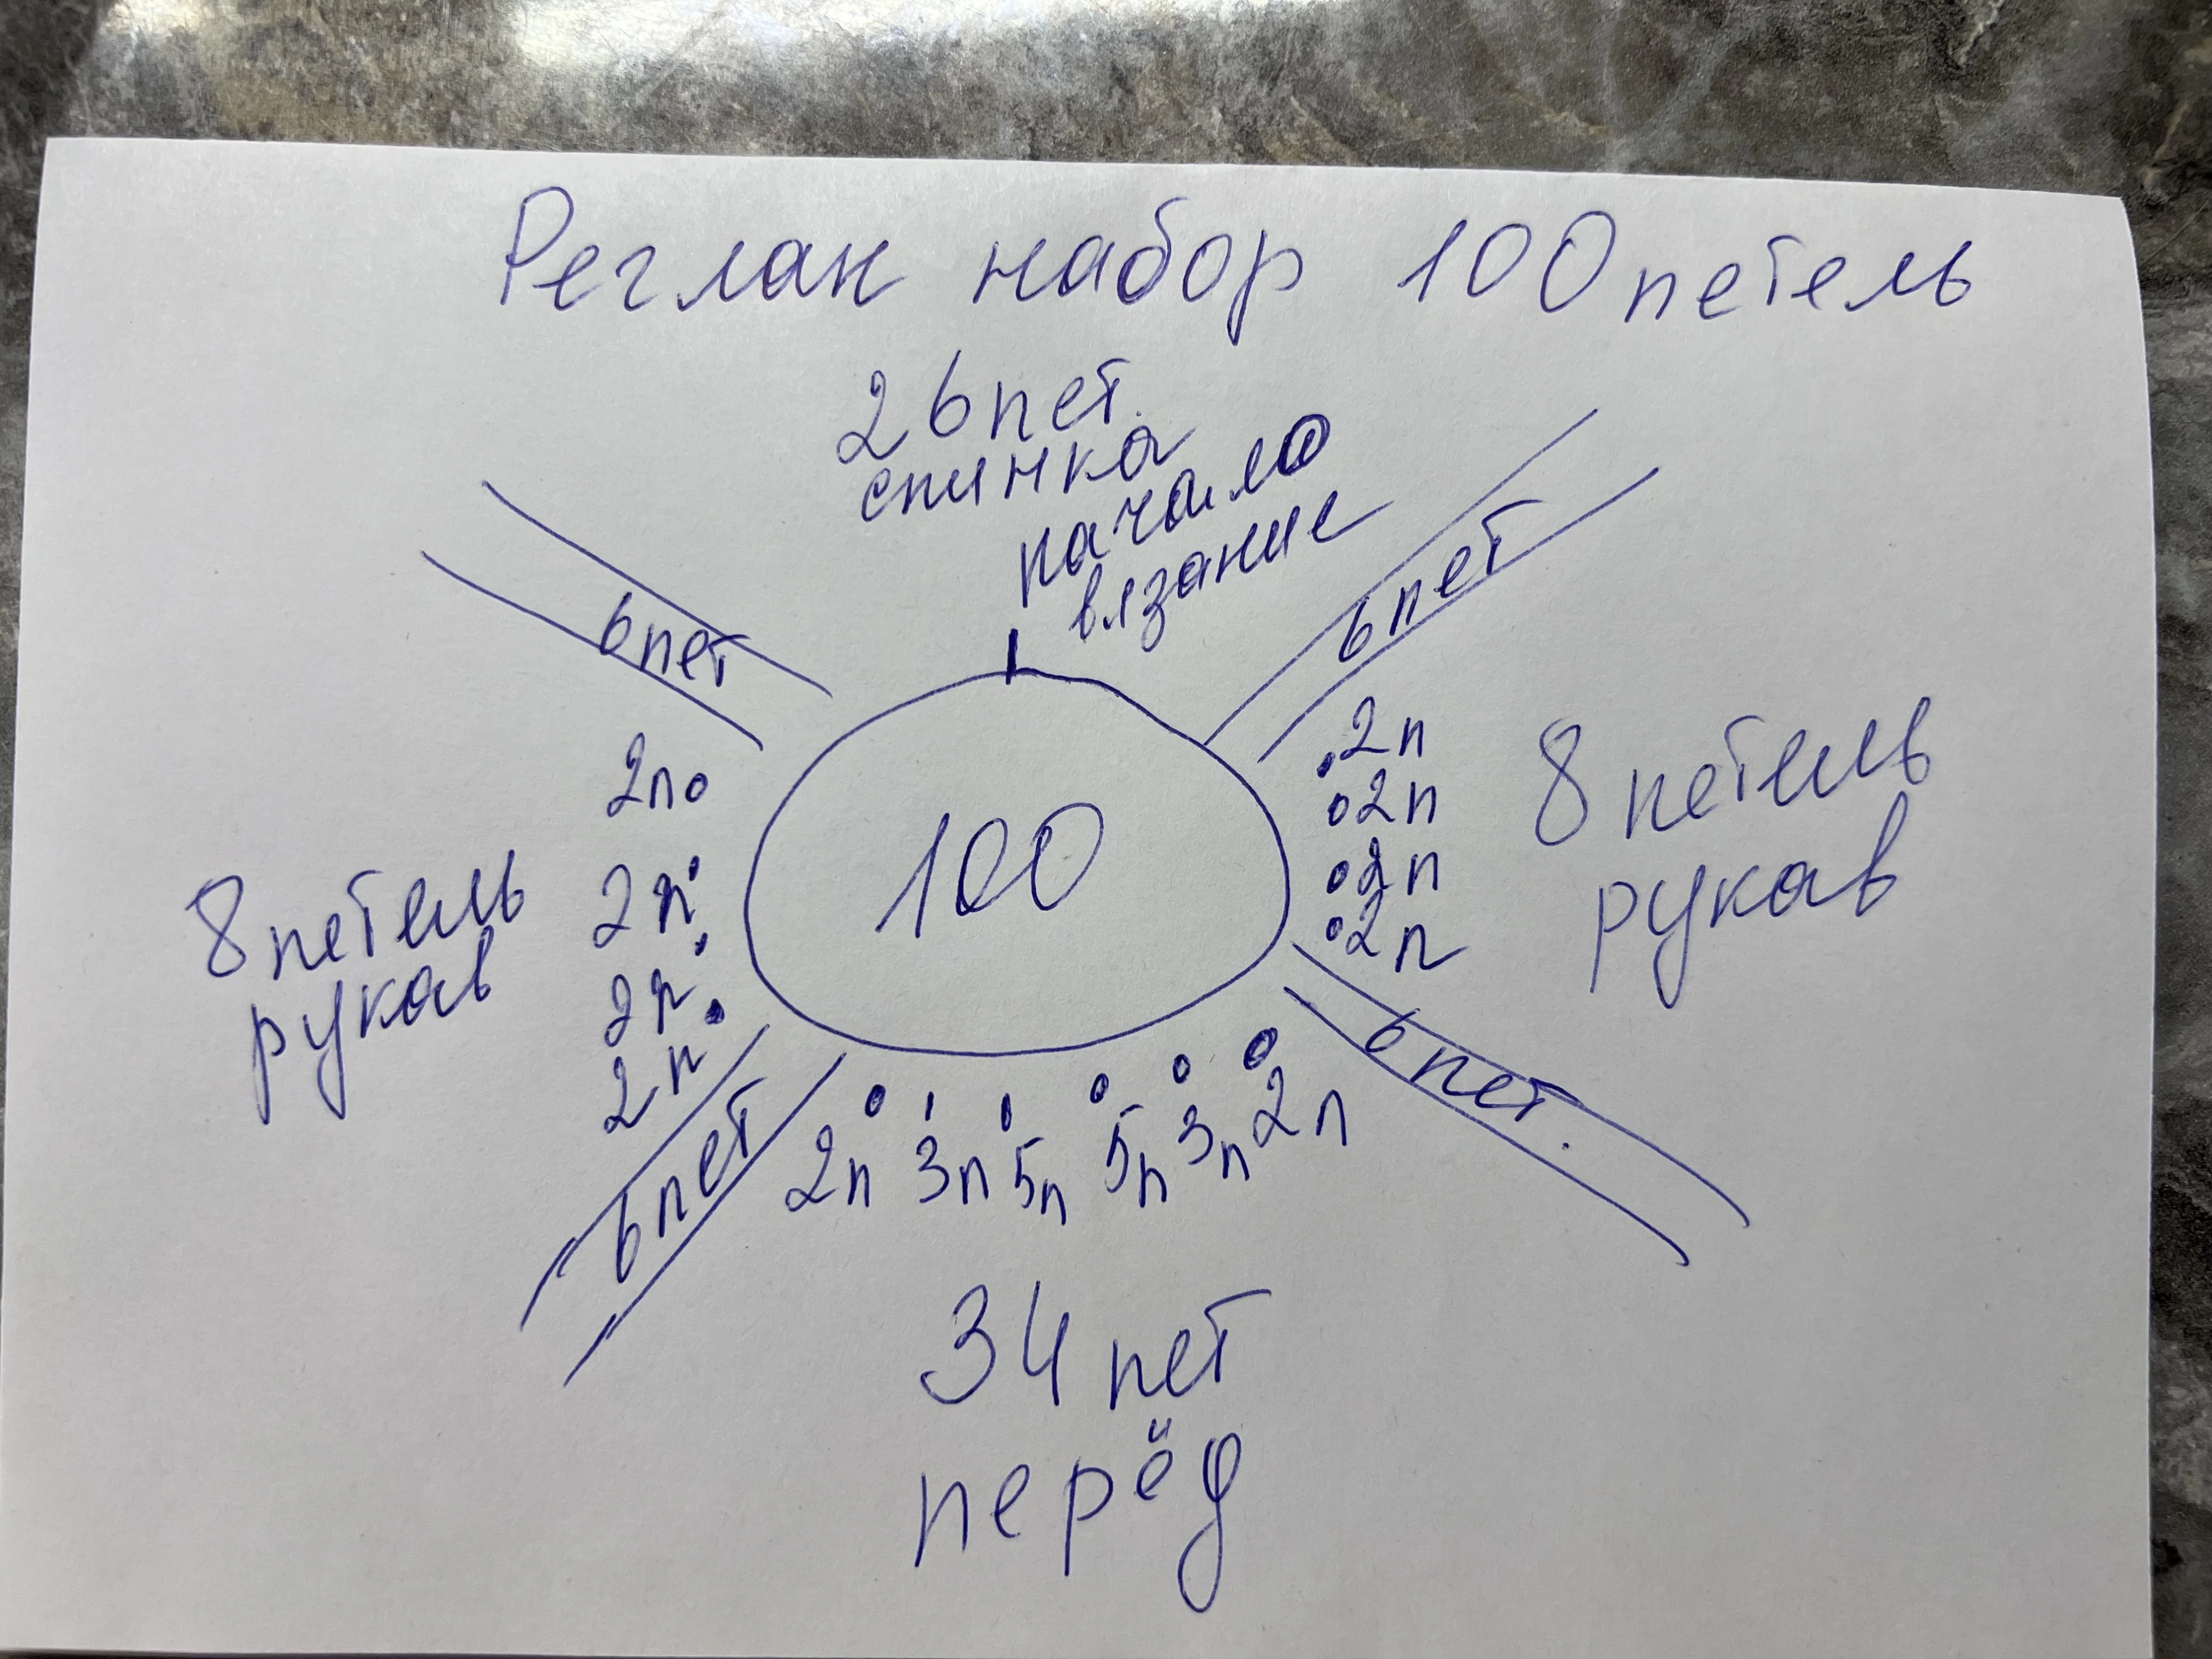 Реглан набор 100 петель
26 пет.
спинка
начало
вязание
6 пет
6 пет
2п
2п
2п
2п
8 петель
рукав
100
2п
2п
2п
2п
8 петель
рукав
6 пет
6 пет.
2п 3п 5п 5п 3п 2п
34 пет
перёд